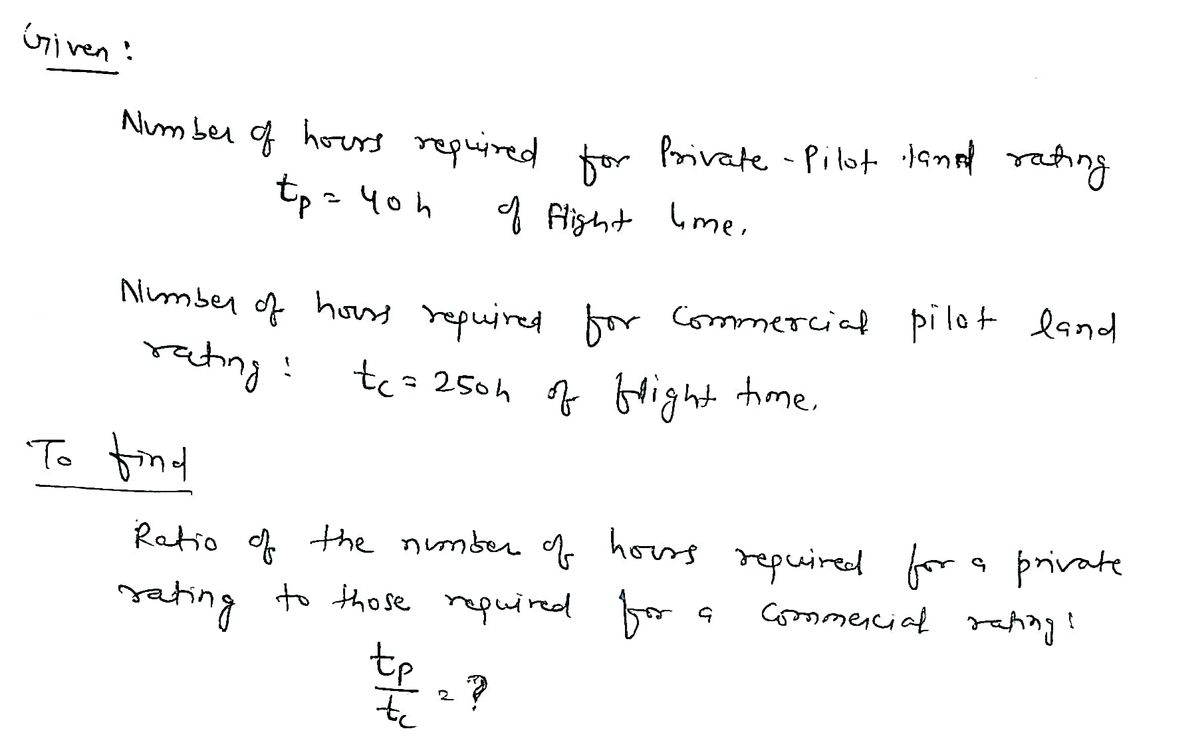 Given :
Number of hours required for Private - Pilot land rating
tp = 40h of flight time.
Number of hours required for Commercial pilot land
rating : tc = 250h of flight time.
To find
Ratio of the number of hours required for a private
rating to those required for a Commercial rating :
tp
/
tc = ?